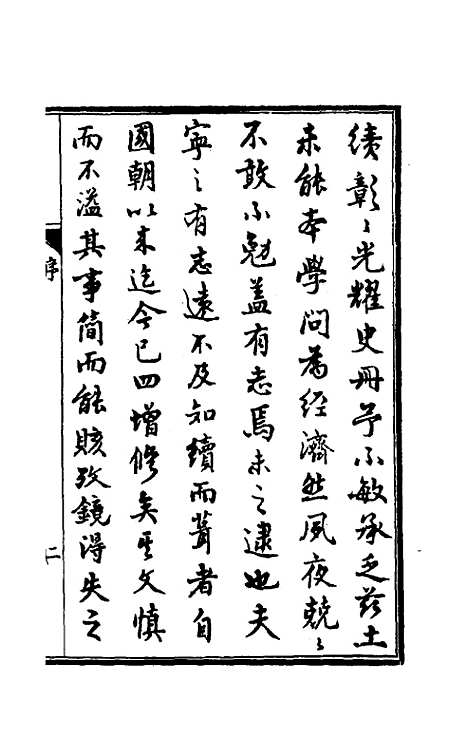 績彰〻光耀史冊予不敏承乏茲土
未能本學問為經濟然夙夜兢〻
不敢不勉蓋有志焉未之逮也夫
寧之有志遠不及知續而葺者自
國朝以來迄今已四增修矣其文慎
而不溢其事簡而能賅攷鏡得失之
序
二